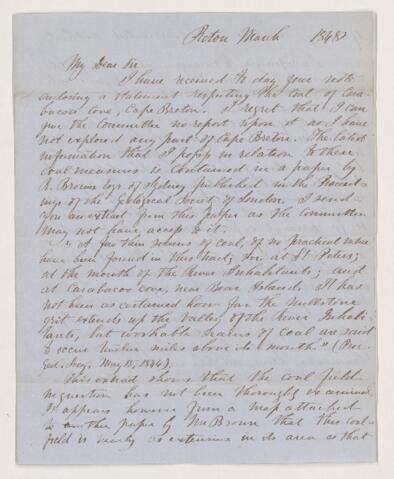 Pictou March 1848
My Dear Sir
I have received to day your note
enclosing a statement respecting the coal of Cara-
bacou Cove, Cape Breton. I regret that I can
give the Committee no report upon it as I have
not explored any part of Cape Breton. The latest
information that I possess in relation to these
coal measures is contained in a paper by
R. Brown Esqr of Sydney published in the Proceed-
ings of the Geological Society of London. I send
you an extract from this paper as the Committee
may not have access to it.
"A few thin seams of coal, of no practical value
have been found in this tract, viz. at St Peters;
at the mouth of the River Inhabitants; and
at Carabacou cove, near Bear Island. It has
not been ascertained how far the millstone
grit extends up the valley of the River Inhabi-
tants, but workable seams of Coal are said
to occur twelve miles above its mouth" (Pro.
Geol. Socy. May 15, 1844).
This extract shows that the coal field
in question has not been thoroughly examined.
It appears however from a map attached
to another paper by Mr Brown that this coal-
field is nearly as extensive in its area as that